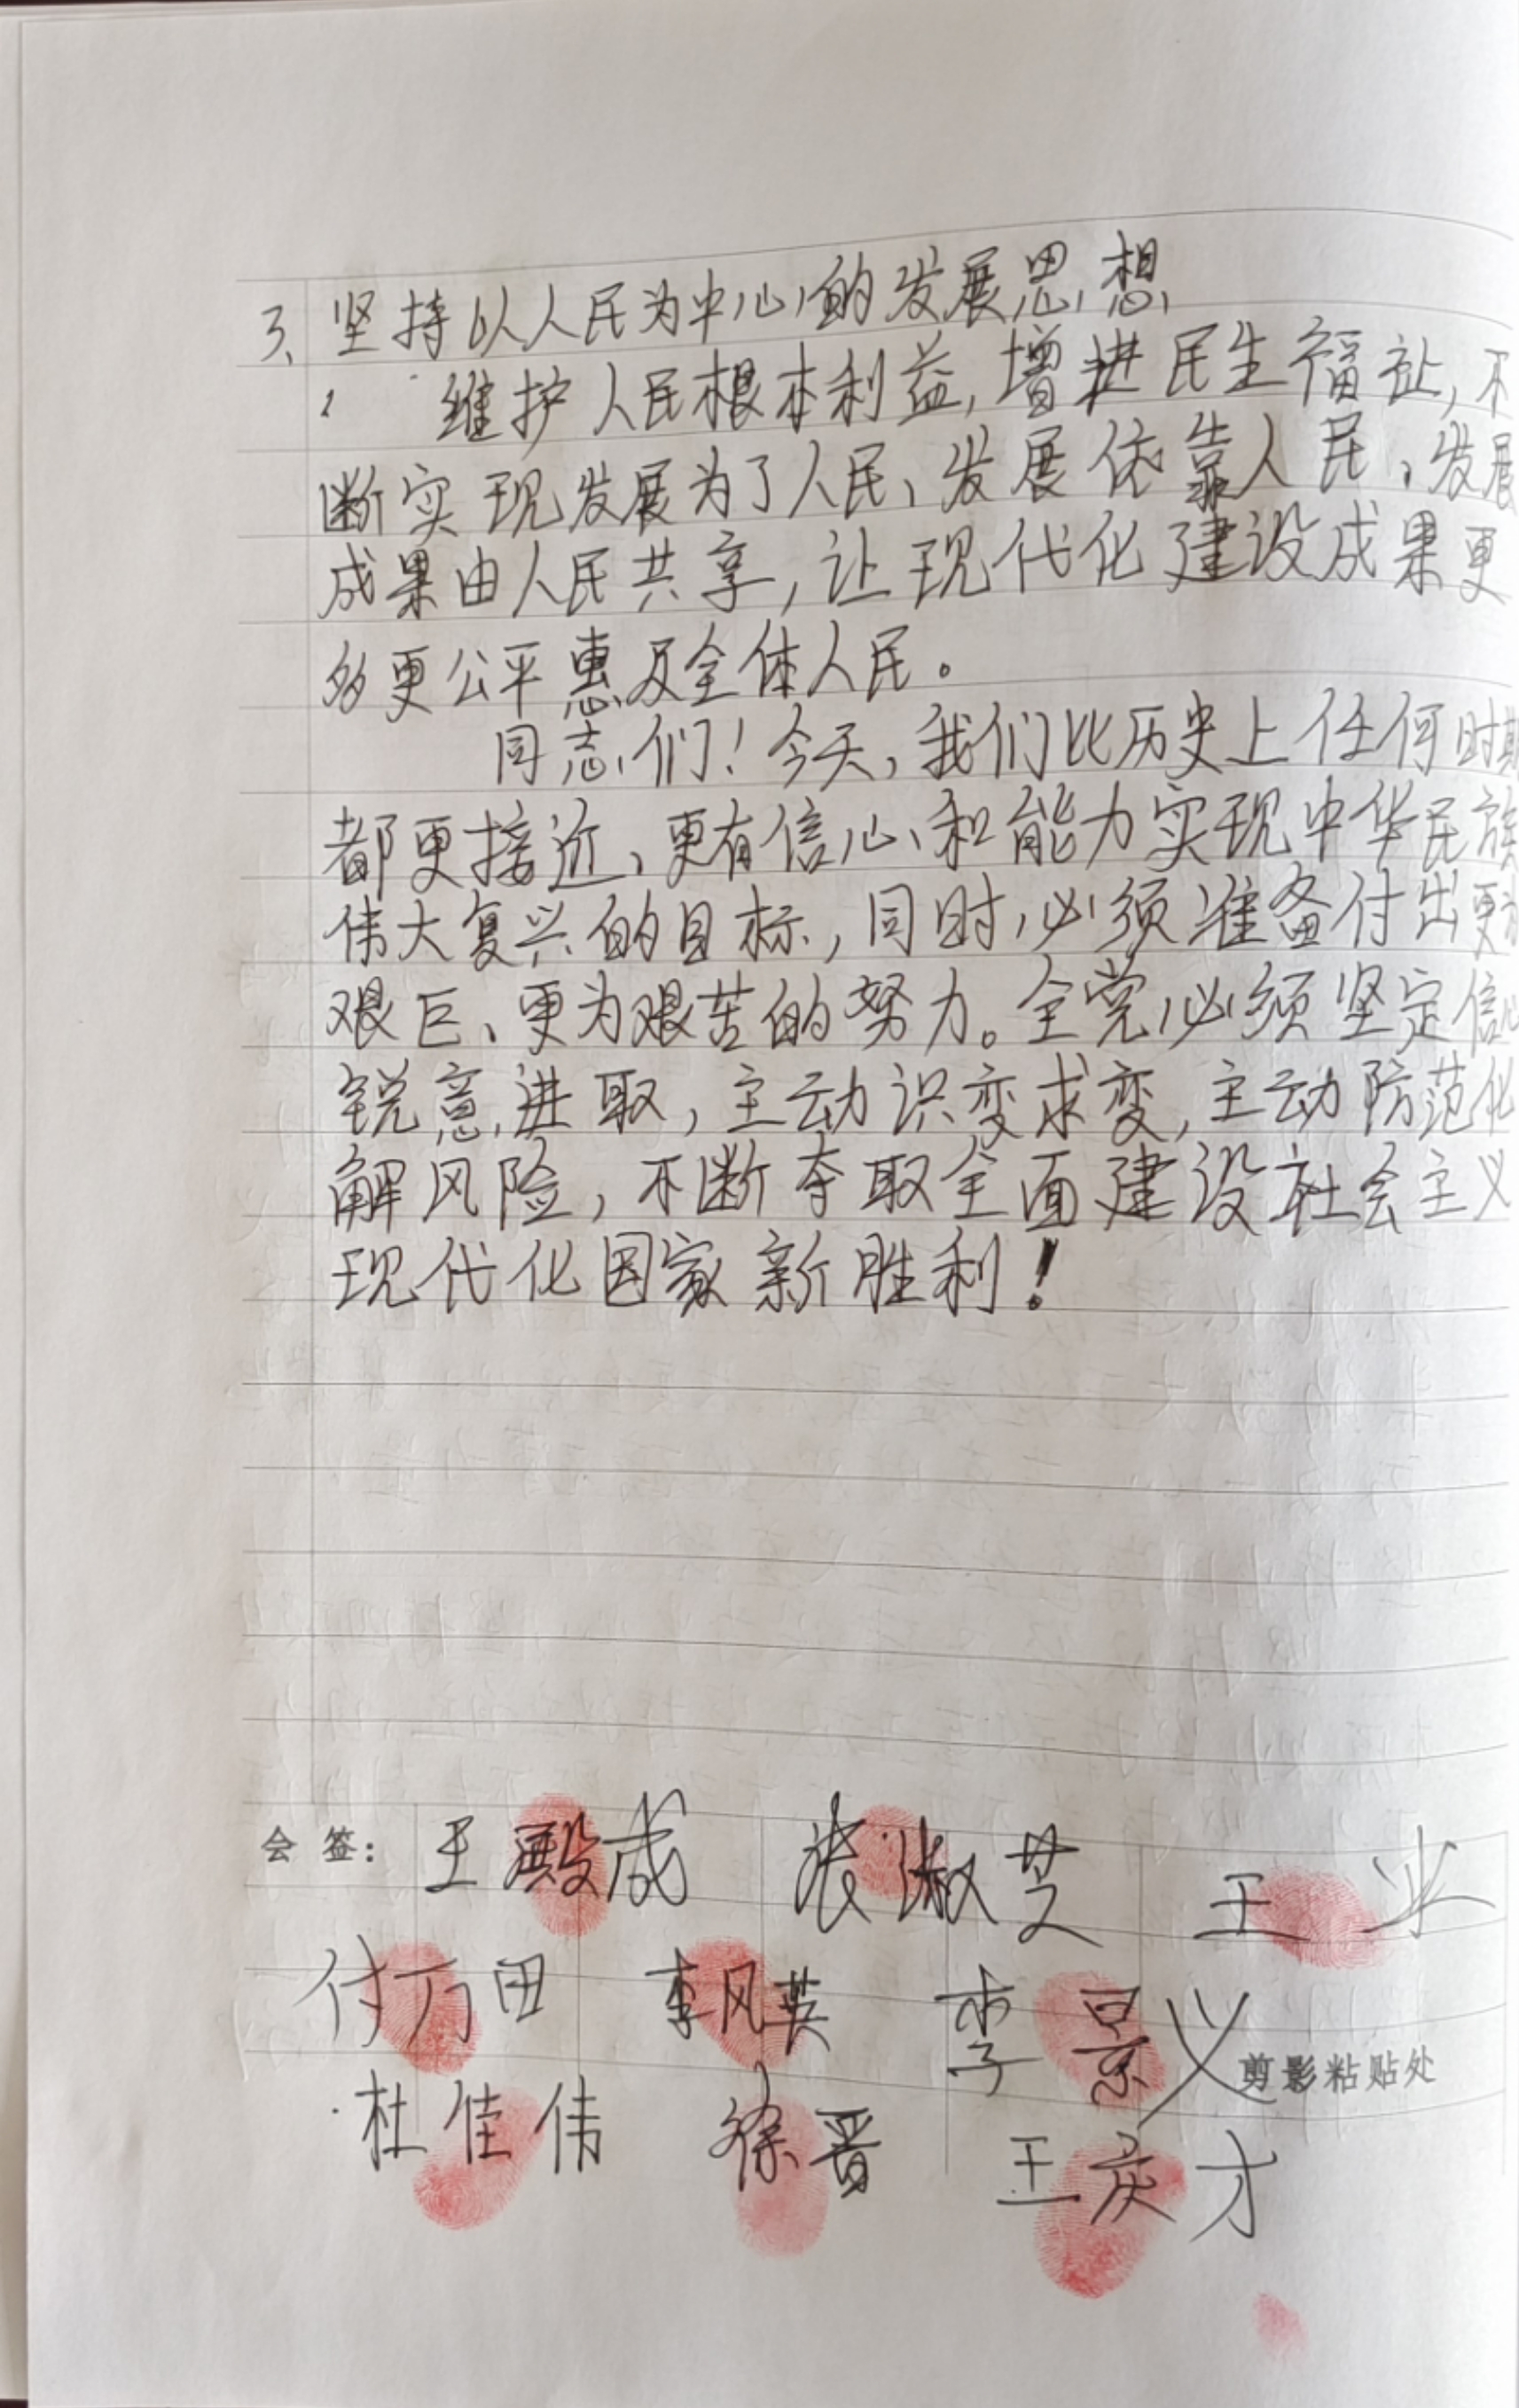 3、坚持以人民为中心的发展思想
维护人民根本利益,增进民生福祉,不
断实现发展为了人民、发展依靠人民、发展
成果由人民共享,让现代化建设成果更
多更公平惠及全体人民。
同志们!今天,我们比历史上任何时期
都更接近、更有信心和能力实现中华民族
伟大复兴的目标,同时必须准备付出更为
艰巨、更为艰苦的努力。全党必须坚定信心
锐意进取,主动识变求变,主动防范化
解风险,不断夺取全面建设社会主义
现代化国家新胜利!
会签: 王殿成 张淑芝 王业
付万田 李风英 李景义
剪影粘贴处
杜佳伟 徐晋 王庆才